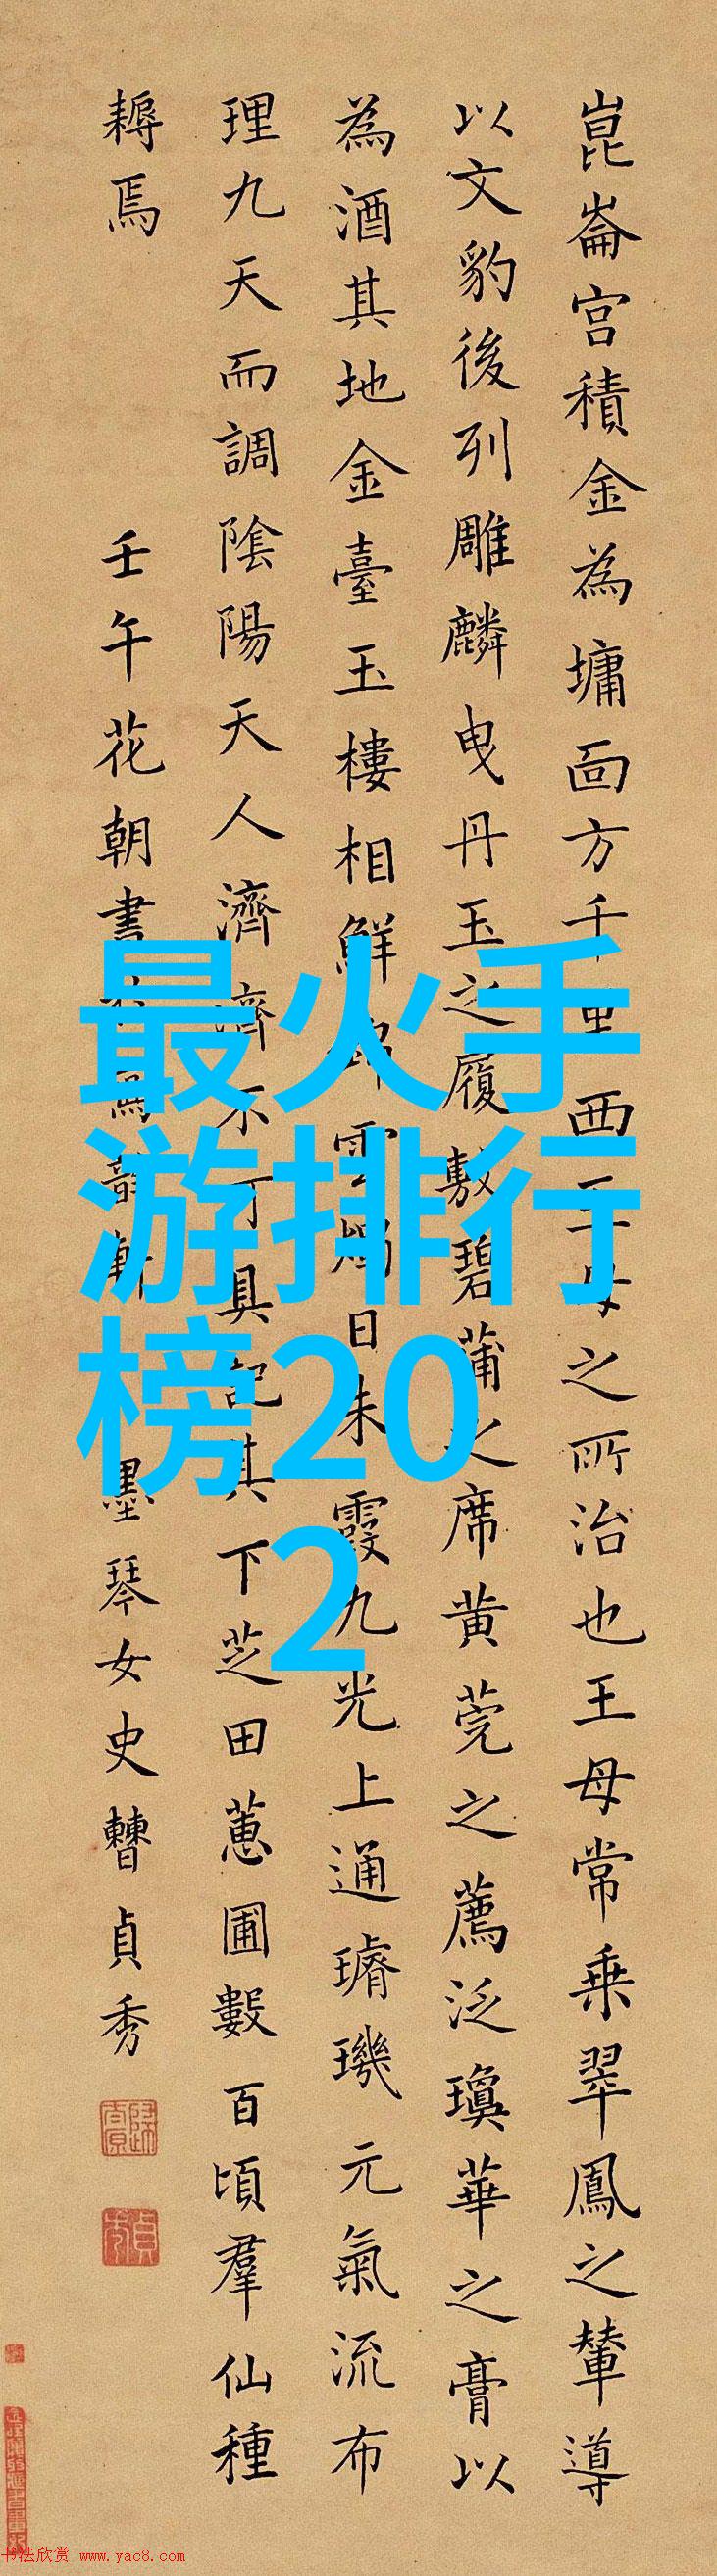 崑崙宮積金為墉面方千里西王母之所治也王母常乘翠鳳之輦導
以文豹後列雕麟曳丹玉之履敷碧蒲之席黃莞之薦泛瓊華之膏以
為酒其地金臺玉樓相鮮雲燭日朱霞九光上通璿璣元氣流布
理九天而調陰陽天人濟濟不可具記其下芝田蕙圃數百頃羣仙種
耨焉
壬午花朝書 墨琴女史曹貞秀
最火手
游排行
榜20
2
书法欣赏 www.yac8.com